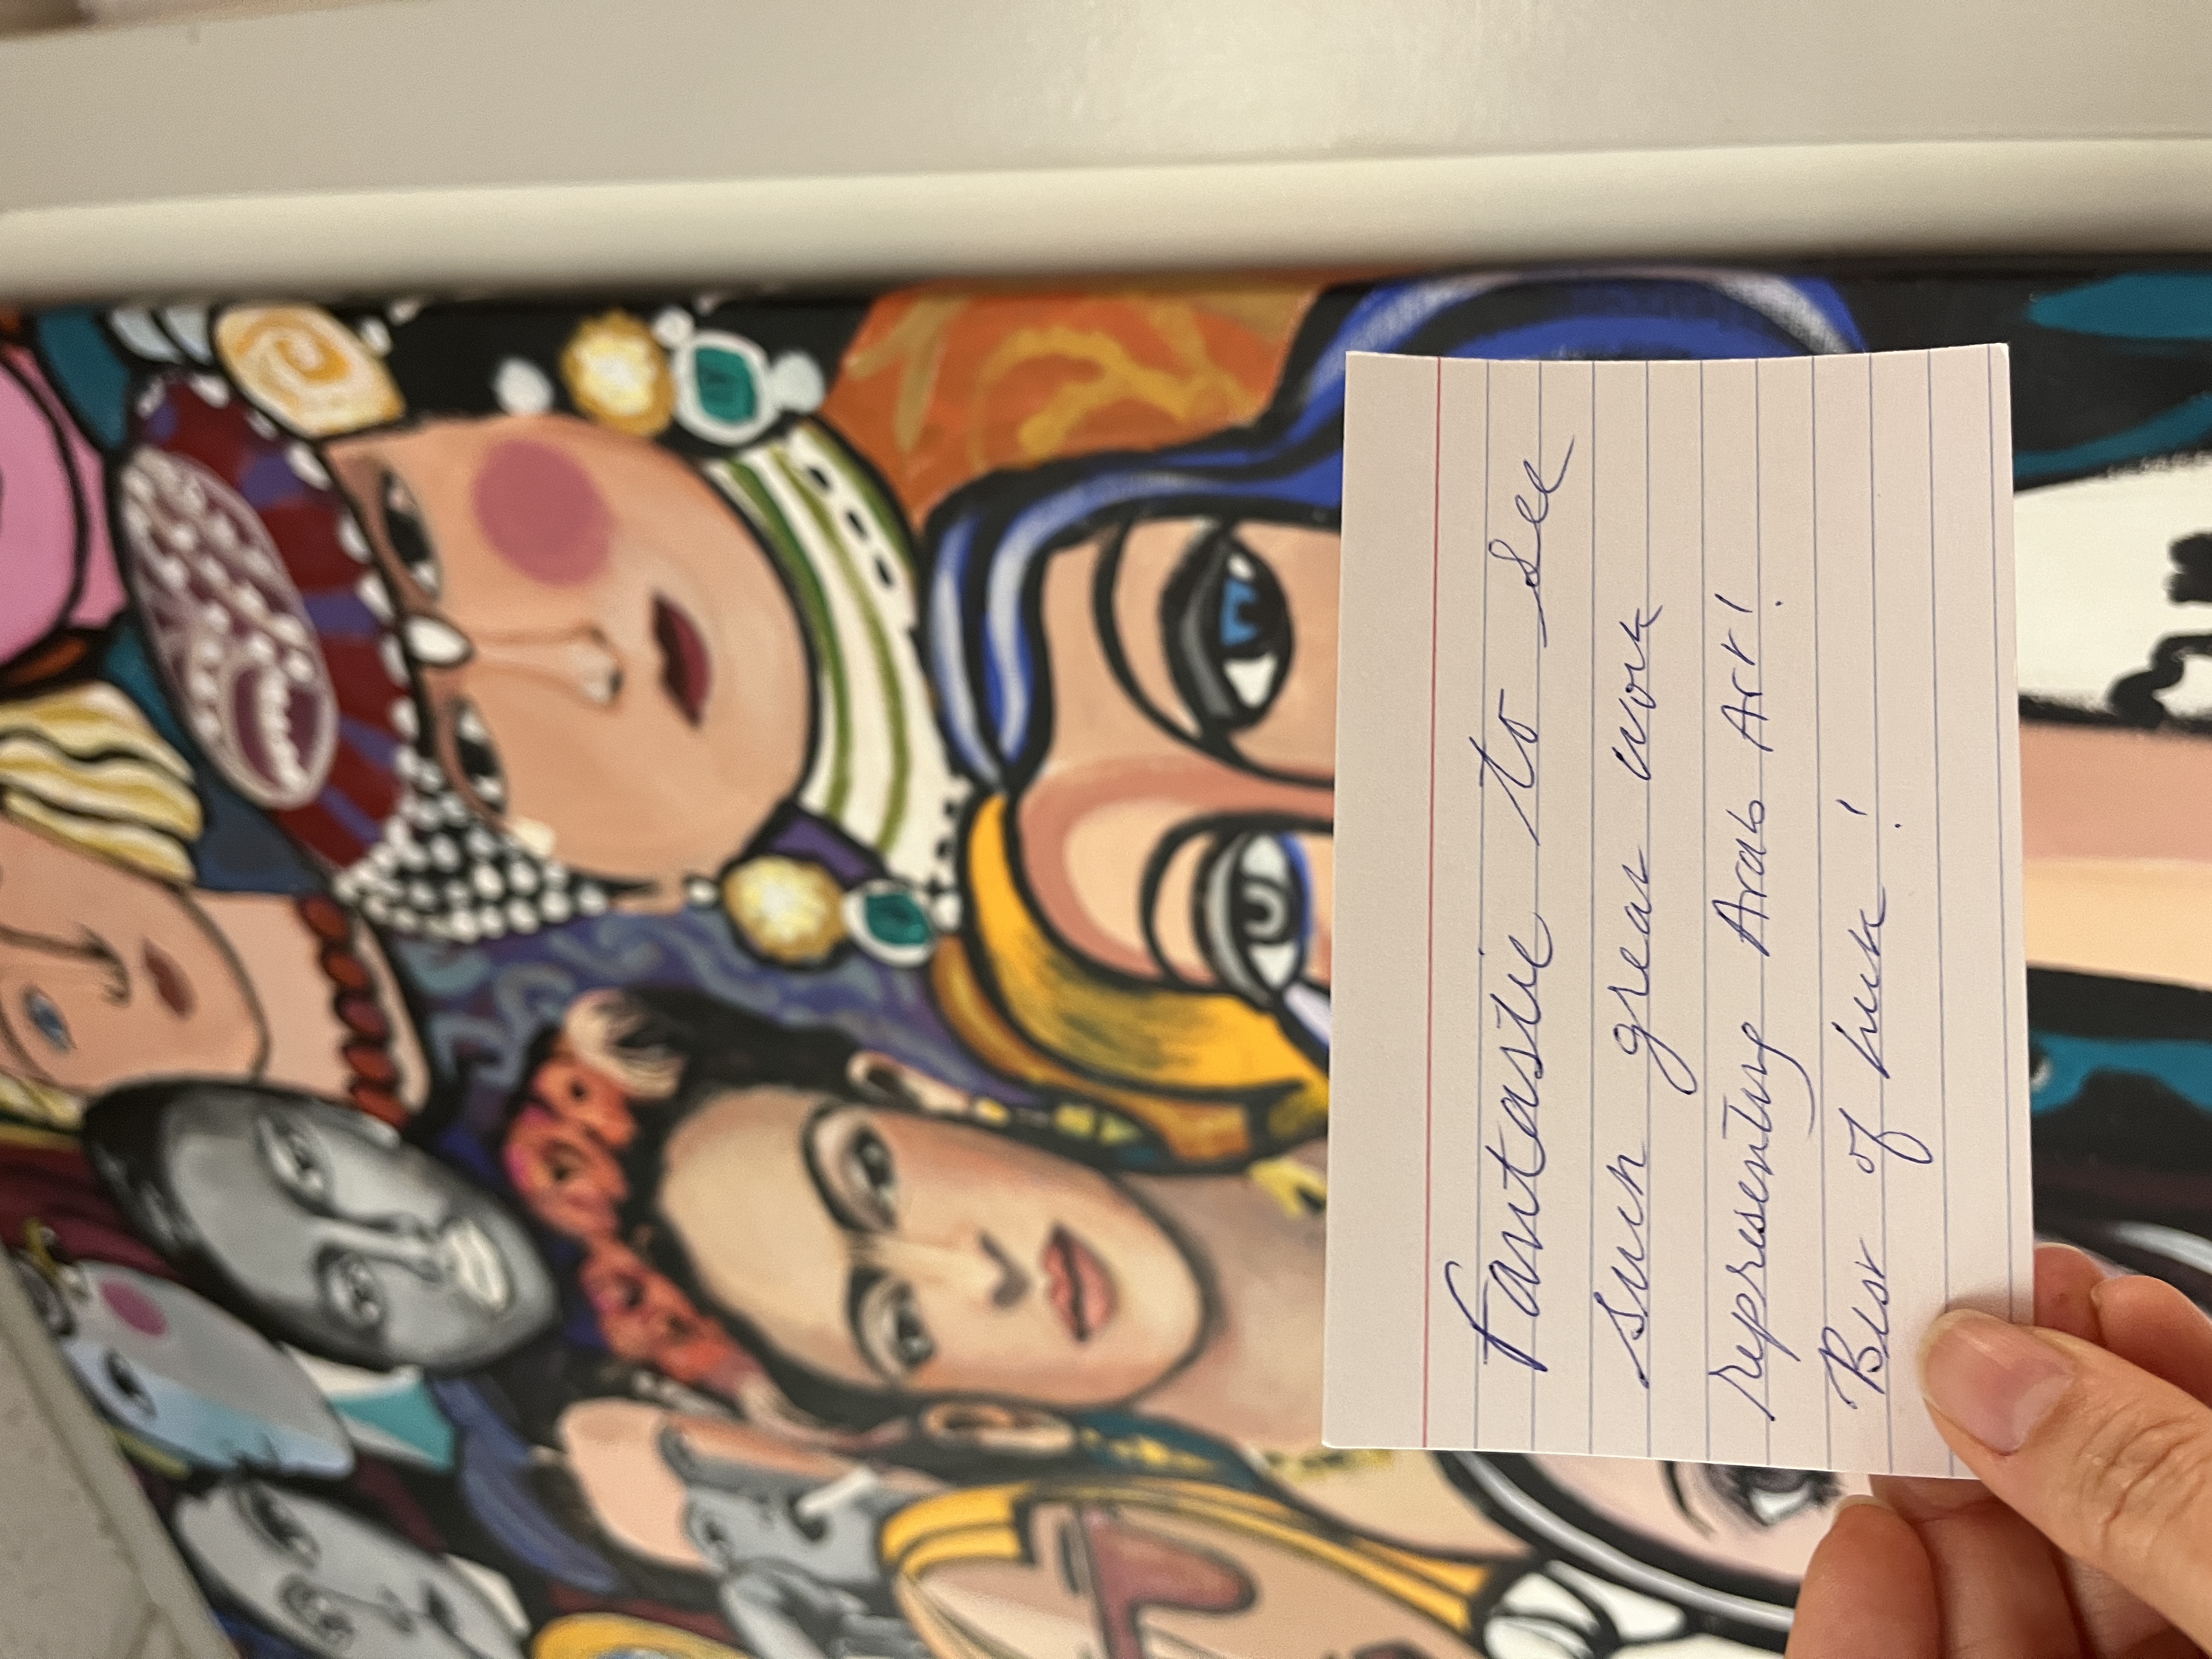 Fantastic to see
such great work
representing Arab Art!
Best of luck!